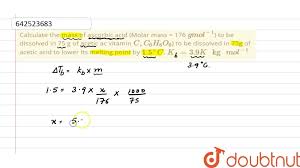 642523683
Calculate the mass of ascorbic acid (Molar mass = 176 gmol⁻¹) to be
dissolved in 75 g of acetic ac vitamin C, C₆H₈O₆) to be dissolved in 75g of
acetic acid to lower its melting point by 1.5°C. K_b = 3.9K kg mol⁻¹
3.9°C
ΔT_b = k_b × m
1.5 = 3.9 × x/176 × 1000/75
x = 5.
doubtnut